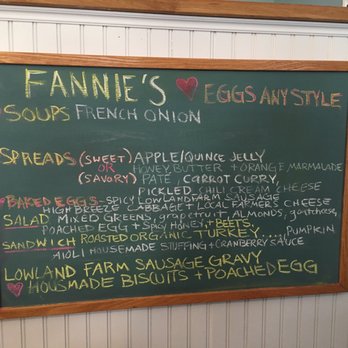 FANNIE'S ♥ EGGS ANY STYLE
SOUPS FRENCH ONION
SPREADS (SWEET) APPLE/QUINCE JELLY
OR HONEY BUTTER + ORANGE MARMALADE
(SAVORY) PATE, CARROT CURRY,
PICKLED CHILI CREAM CHEESE
BAKED EGGS - SPICY LOWLAND FARM SAUSAGE
HIGH BREEZE CABBAGE + LOCAL FARMERS CHEESE
SALAD MIXED GREENS, grapefruit, ALMONDS, goatcheese,
POACHED EGG + SPICY HONEY, + BEETS,
SANDWICH ROASTED ORGANIC TURKEY.... PUMPKIN
AIOLI HOUSEMADE STUFFING + CRANBERRY SAUCE
LOWLAND FARM SAUSAGE GRAVY
♥ HOUSMADE BISCUITS + POACHED EGG